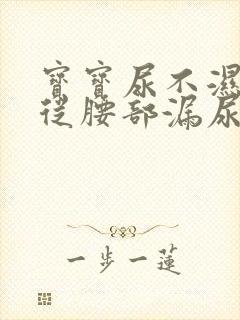 寶寶尿不濕
從腰部漏尿
一步一蓮